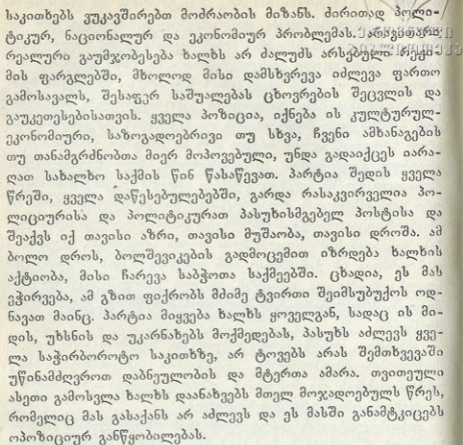 საკითხებს ვუკავშირებთ მოძრაობის მიზანს. ძირითად პოლი-
ტიკურ, ნაციონალურ და ეკონომიურ პრობლემას. არავითარი
რეალური გაუმჯობესება ხალხს არ ძალუძს არსებული რეჟი-
მის ფარგლებში, მხოლოდ მისი დამსხვრევა იძლევა ფართო
გამოსავალს, შესაფერ საშუალებას ცხოვრების შეცვლის და
გაუკეთესებისათვის. ყველა პოზიცია, იქნება ის კულტურულ-
ეკონომიური, საზოგადოებრივი თუ სხვა, ჩვენი ამხანაგების
თუ თანამგრძნობთა მიერ მოპოვებული, უნდა გადაიქცეს იარა-
ღათ სახალხო საქმის წინ წასაწევათ. პარტია შედის ყველა
წრეში, ყველა დაწესებულებებში, გარდა რასაკვირველია პო-
ლიციურისა და პოლიტიკურათ პასუხისმგებელ პოსტისა და
შეაქვს იქ თავისი აზრი, თავისი მუშაობა, თავისი დროშა. ამ
ბოლო დროს, ბოლშევიკების გადმოცემით იზრდება ხალხის
აქტიობა, მისი ჩარევა საბჭოთა საქმეებში. ცხადია, ეს მას
ეჭირვება, ამ გზით ფიქრობს მძიმე ტვირთი შეიმსუბუქოს ოდ-
ნავათ მაინც. პარტია მიყვება ხალხს ყოველგან, სადაც ის მი-
დის, უხსნის და უკარნახებს მოქმედებას, პასუხს აძლევს ყვე-
ლა საჭირბოროტო საკითხზე, არ ტოვებს არას შემთხვევაში
უწინამძღვროთ დაბნეულობის და მტერთა ამარა. თვითეული
ასეთი გამოსვლა ხალხს დაანახვებს მთელ მოჯადოებულს წრეს,
რომელიც მას გასაქანს არ აძლევს და ეს მასში განამტკიცებს
ოპოზიციურ განწყობილებას.